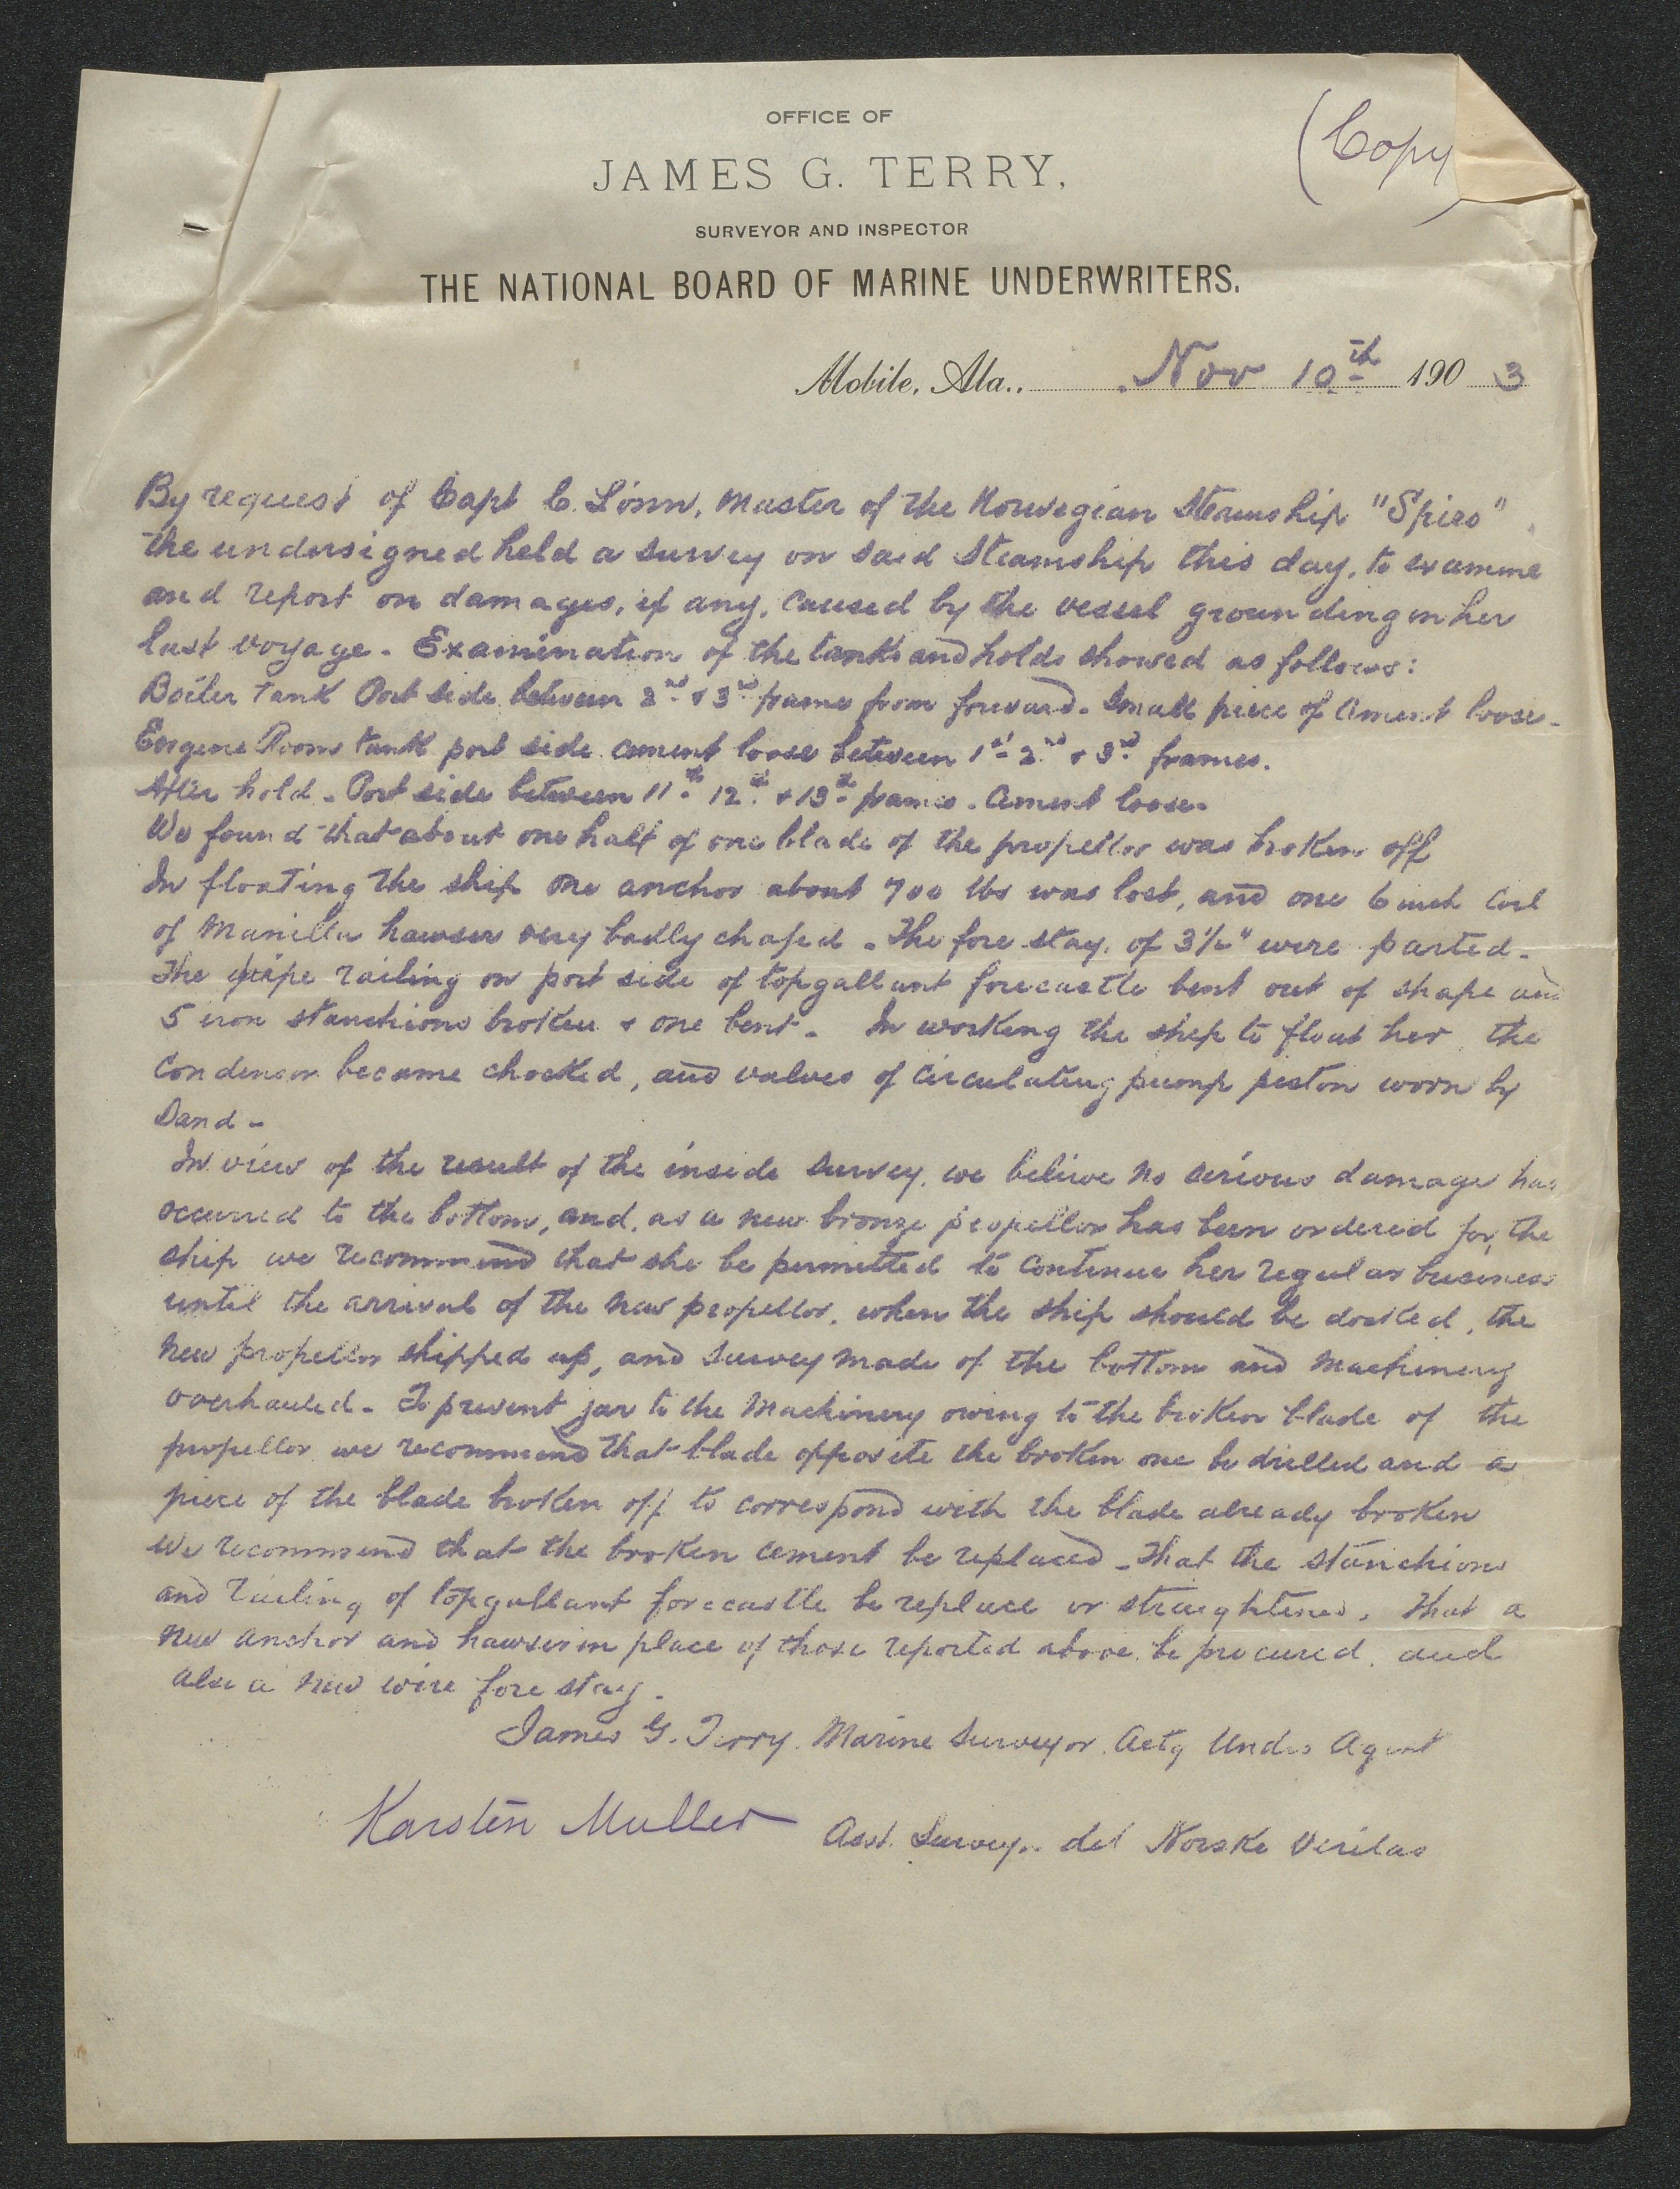 OFFICE OF
(Copy
JAMES G. TERRY,
SURVEYOR AND INSPECTOR
THE NATIONAL BOARD OF MARINE UNDERWRITERS.
Mobile, Ala., Nov 10th 1903
By request of Capt C. Linn, Master of the Norwegian Steamship "Spero"
the undersigned held a survey on said Steamship this day, to examine
and report on damages, if any, caused by the vessel grounding on her
last voyage - Examination of the tanks and holds showed as follows:
Boiler tank Port side between 2nd & 3rd frame from forward - Small piece of Cement loose -
Engine Room tank port side cement loose between 1st 2nd & 3rd frames.
After hold - Port side between 11th 12th & 13th frames. Cement loose -
We found that about one half of one blade of the propeller was broken off
In floating the ship one anchor about 700 lbs was lost, and one 6 inch Coil
of Manilla hawser very badly chafed - The fore stay, of 3½" wire parted -
The pipe railing on port side of topgallant forecastle bent out of shape and
5 iron stanchions broken & one bent - In working the ship to float her the
Condenser became chocked, and valves of Circulating pump piston worn by
Sand -
In view of the result of the inside survey, we believe no serious damage has
occurred to the bottom, and, as a new bronze propellor has been ordered for the
ship we recommend that she be permitted to continue her regular business
until the arrival of the new propellor, when the ship should be docked, the
new propellor shipped up, and survey made of the bottom and Machinery
overhauled - To prevent jar to the Machinery owing to the broken blade of the
propellor we recommend that blade opposite the broken one be drilled and a
piece of the blade broken off to correspond with the blade already broken
We recommend that the broken cement be replaced - That the stanchions
and railing of topgallant forecastle be replace or straightened, that a
new anchor and hawser in place of those reported above be procured, and
also a new wire fore stay.
James G. Terry. Marine Surveyor, Actg Undrs Agent
Karsten Muller Asst. Surveyr det Norske Veritas